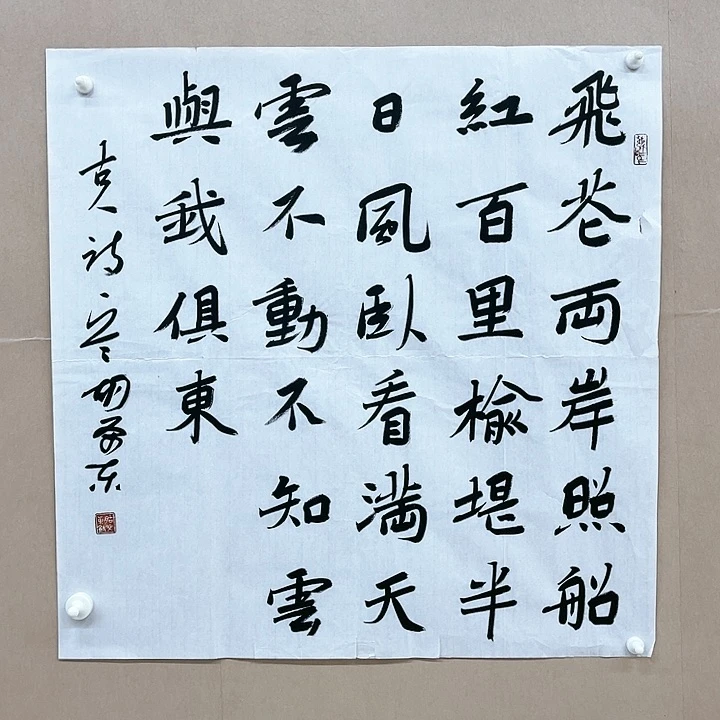 飛花兩岸照船
紅百里榆堤半
日風臥看滿天
雲不動不知雲
與我俱東
古人詩一首